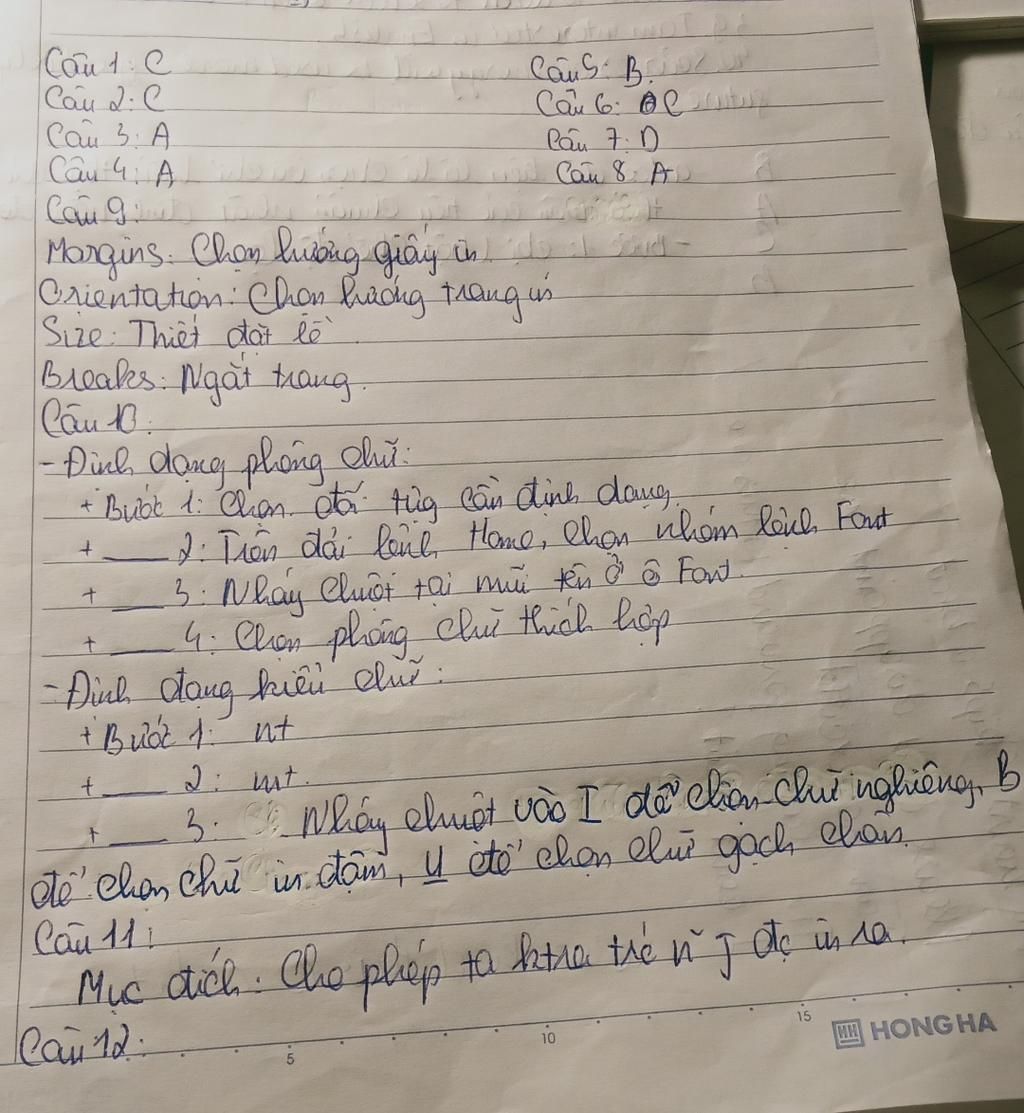 Câu 1: C
Câu 2: C
Câu 3: A
Câu 4: A
Câu 5: B.
Câu 6: C
Câu 7: D
Câu 8: A
Câu 9:
Margins: Chọn hướng giấy in
Orientation: Chọn hướng trang in
Size: Thiết đặt lề
Breaks: Ngắt trang.
Câu 10:
- Định dạng phông chữ:
+ Bước 1: Chọn đối tượng cần định dạng
+ ___ 2: Trên dải lệnh Home, chọn nhóm lệnh Font
+ ___ 3: Nháy chuột tại mũi tên ở ô Font.
+ ___ 4: Chọn phông chữ thích hợp
- Định dạng kiểu chữ:
+ Bước 1: nt
+ ___ 2: nt.
+ ___ 3: Nháy chuột vào I để chọn chữ nghiêng, B
để chọn chữ in đậm, U để chọn chữ gạch chân.
Câu 11:
Mục đích: Cho phép ta ktra trc n~ j đc in ra.
Câu 12:
5 10 15
HH HONG HA